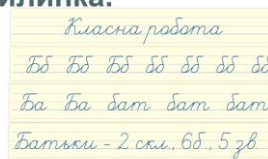 Класна робота
Бб Бб Бб бб бб бб бб
Ба Ба бат бат бат
Батьки – 2 скл., 6б., 5 зв.